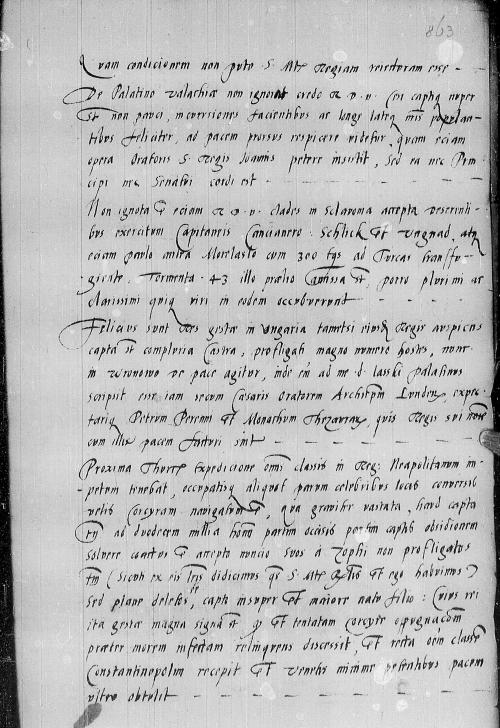 863
Quam condicionem non puto S. Mte Regiam reiecturam esse
De Palatino Valachiæ non ignorat credo R. D. V. Cui capti nuper
st non pauci, incursiones facientibus ac longe lateq mıs populan-
tibus feliciter, ad pacem prorsus respicere videtur, quam eciam
opera Oratoris S. Regis Joannis petere insistit, sed ea nec Prin
cipi nec Senatui cordi est
Non ignota est eciam R. D. V. clades in Sclavonia accepta deserenti-
bus exercitum Capitaneis Cancianero. Schlick et Ungnad, atq
eciam paulo antea Morelasto cum 300 eqs ad Turcas transfu-
giente, Tormenta 43 illo prælio amissa st, porro plurimi ac
clarissimi quiq viri in eodem occubuerunt
Felicius sunt res gestæ in Ungaria tametsi eiusdem Regis auspiciis
capta st compluria Castra, profligati magno numero hostes, nunc
in Wronowo de pace agitur, inde em ad me d. Lasski palatinus
scripsit esse iam secum Cæsaris Oratorem Archiepm Lunden, expec
tariq Petrum Pereni et Monachum Thezaurar, quis Regis sui nõie
cum illis pacem facturi sint
Proxima Thurcæ Expedicione omi classis in Reg: Neapolitanum im-
petum tenebat, occupatisq aliquot parum celebribus locis conversis
velis Corcyram navigatum est, qua graviter vastata, haud capta
tn ad duodecim millia hom partim occisis partim captis obsidionem
solvere coactus est accepto nuncio suos a Zophi non profligatos
tm (Sicut ex eis lris didicimus qs S. Mte Regis et ego habuimus)
Sed plane deletos, capto insuper et maiore natu filio: Cuius rei
ita gestæ magna signa st qd et tentatam Corcyræ oppugnacõem
præter morem infectam relinquens discessit, et recta oem classem
Constantinopolim recepit et Venetis minime petentibus pacem
ultro obtulit